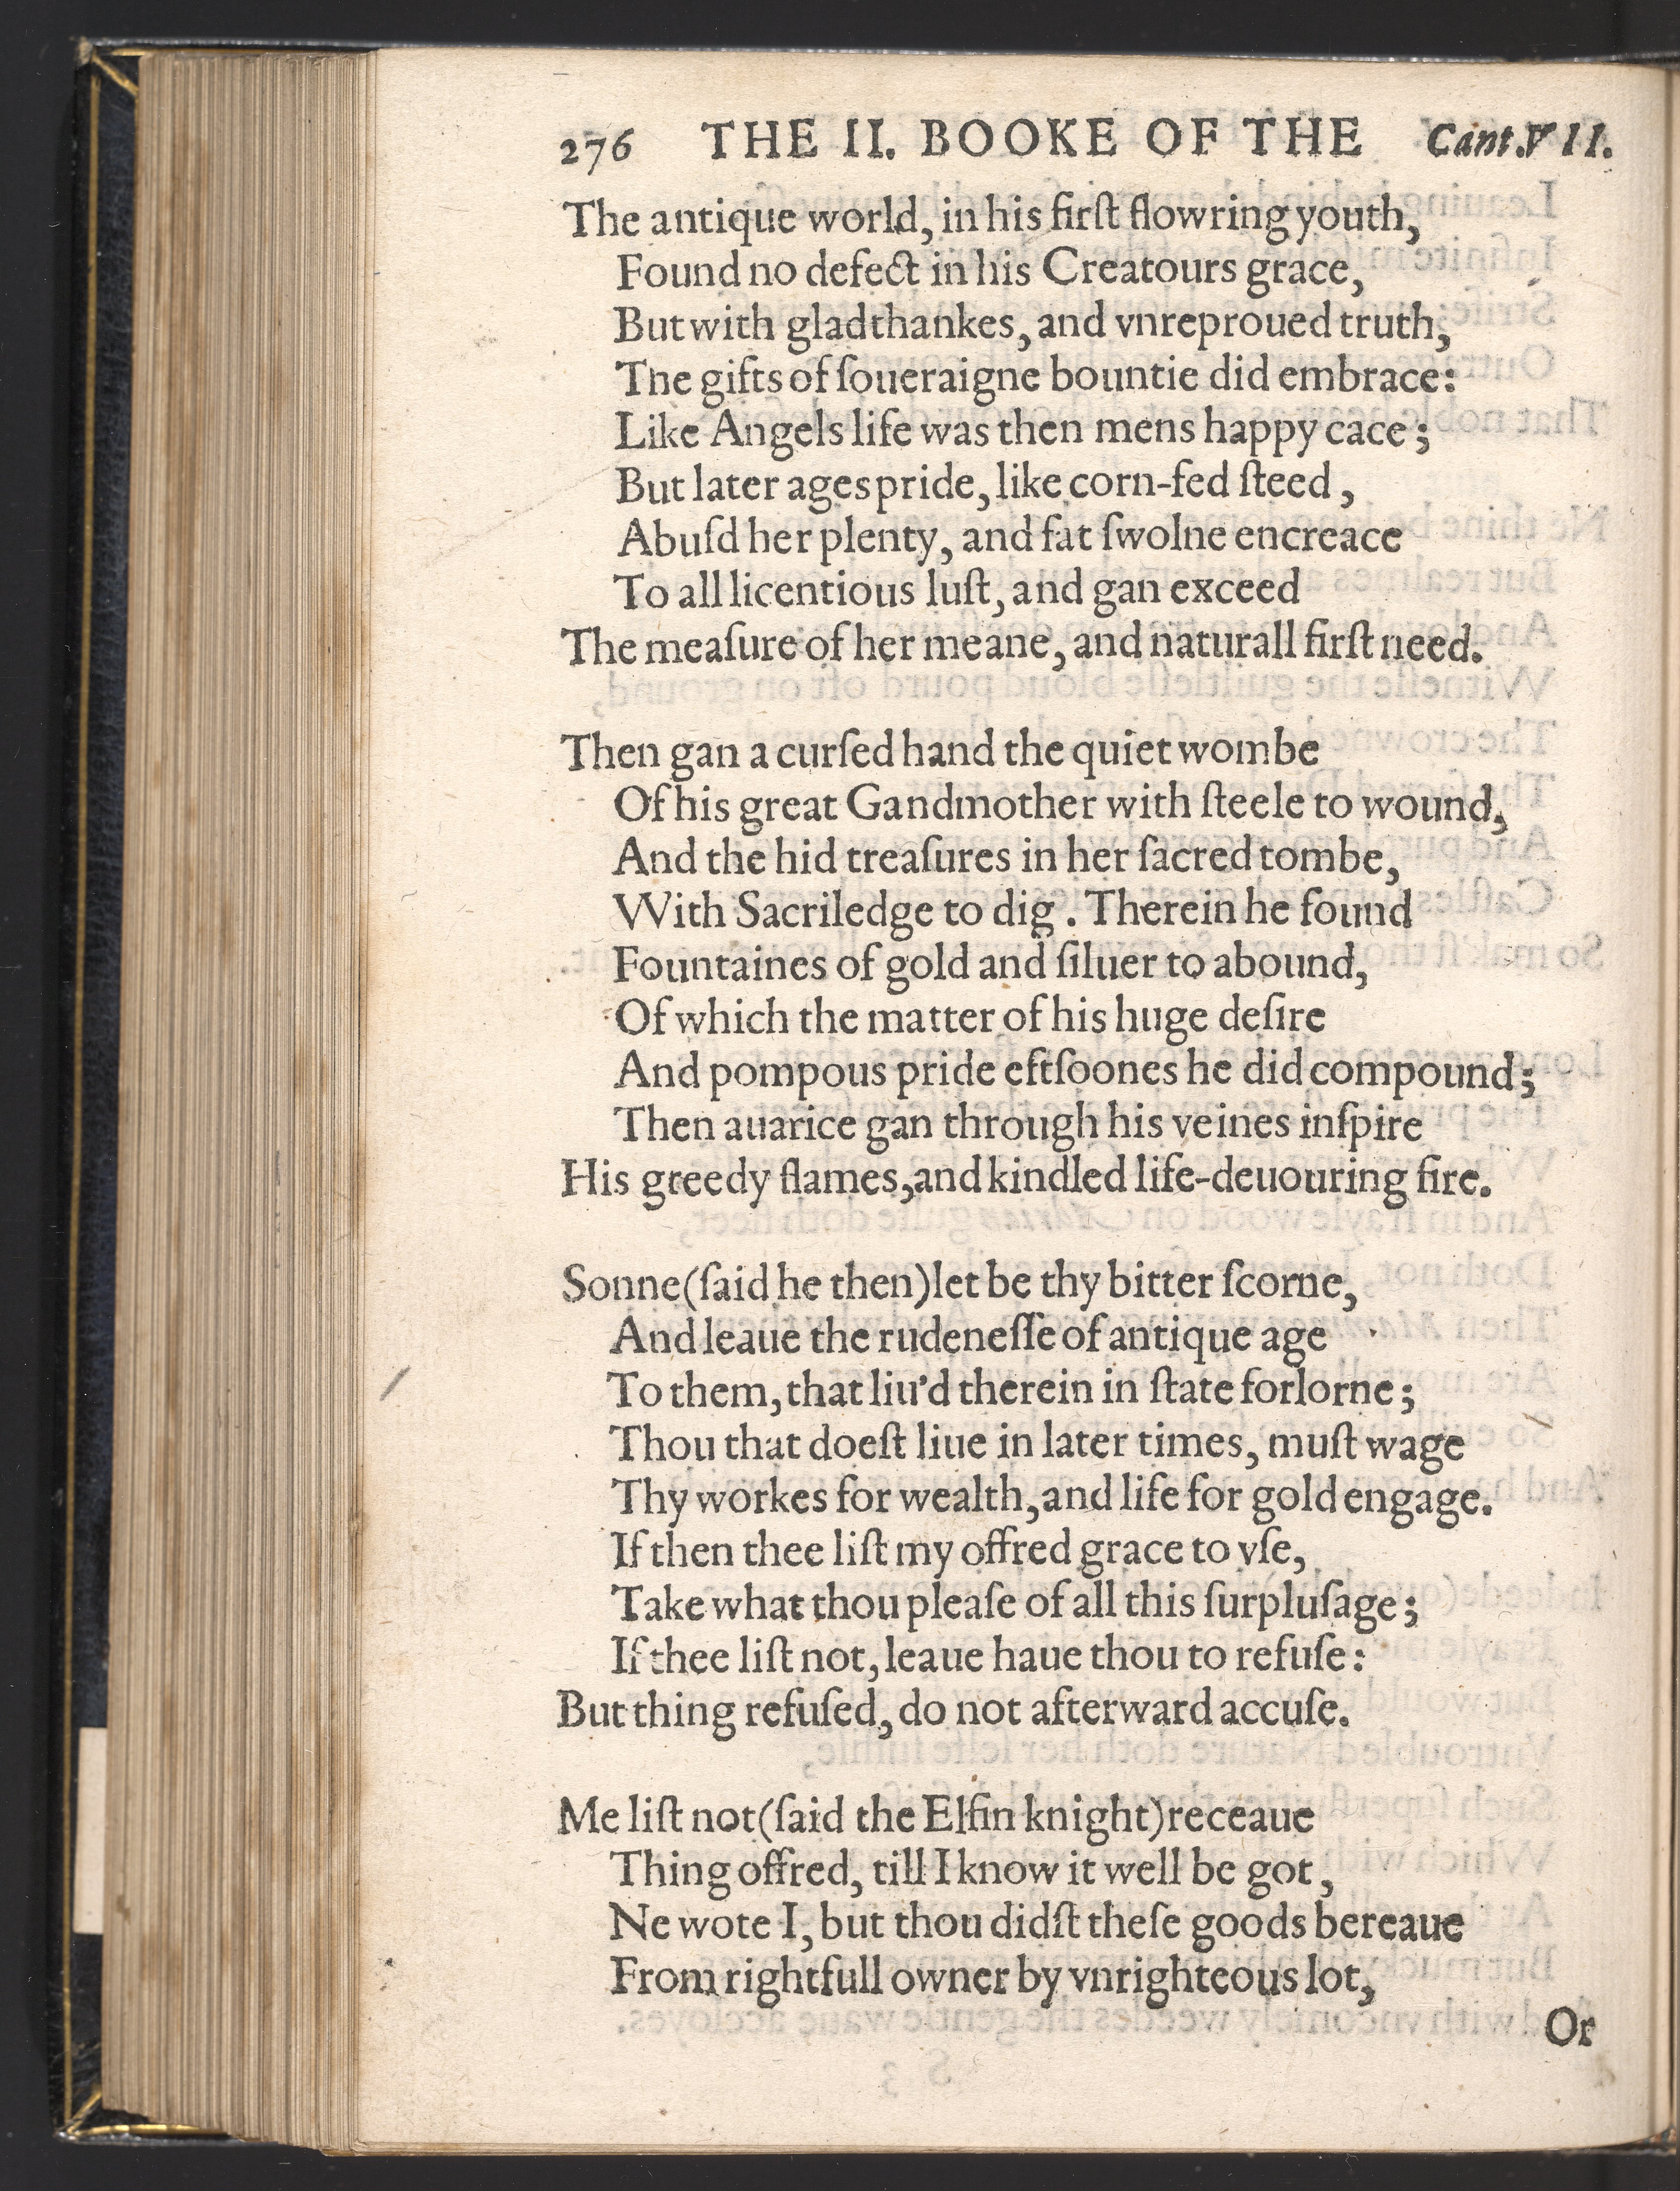 276 THE II. BOOKE OF THE Cant.VII.
The antique world, in his firſt flowring youth,
Found no defect in his Creatours grace,
But with glad thankes, and vnreproued truth,
The gifts of ſoueraigne bountie did embrace:
Like Angels life was then mens happy cace;
But later ages pride, like corn-fed ſteed,
Abuſd her plenty, and fat ſwolne encreace
To all licentious luſt, and gan exceed
The meaſure of her meane, and naturall firſt need.
Then gan a curſed hand the quiet wombe
Of his great Gandmother with ſteele to wound,
And the hid treaſures in her ſacred tombe,
With Sacriledge to dig. Therein he found
Fountaines of gold and ſiluer to abound,
Of which the matter of his huge deſire
And pompous pride eftſoones he did compound;
Then auarice gan through his veines inſpire
His greedy flames, and kindled life-deuouring fire.
Sonne (ſaid he then) let be thy bitter ſcorne,
And leaue the rudeneſſe of antique age
To them, that liu'd therein in ſtate forlorne;
Thou that doeſt liue in later times, muſt wage
Thy workes for wealth, and life for gold engage.
If then thee liſt my offred grace to vſe,
Take what thou pleaſe of all this ſurpluſage;
If thee liſt not, leaue haue thou to refuſe:
But thing refuſed, do not afterward accuſe.
Me liſt not (ſaid the Elfin knight) receaue
Thing offred, till I know it well be got,
Ne wote I, but thou didſt theſe goods bereaue
From rightfull owner by vnrighteous lot,
Or